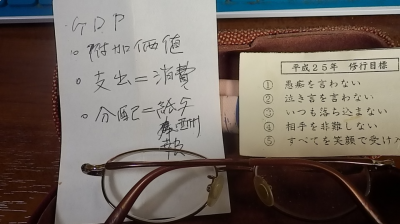 GDP
・附加価値
・支出=消費
・分配=給与
報酬
平成25年 修行目標
① 愚痴を言わない
② 泣き言を言わない
③ いつも落ち込まない
④ 相手を非難しない
⑤ すべてを笑顔で受け入